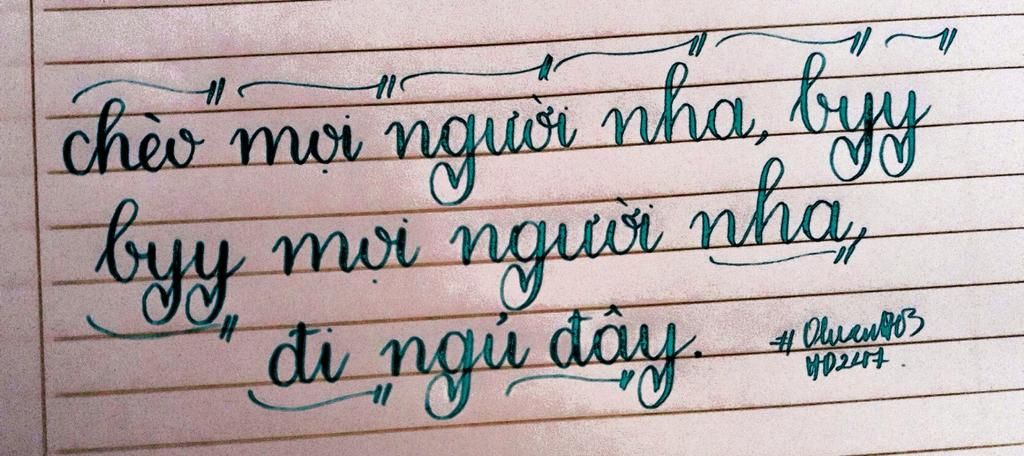 chèo mọi người nha, byy
byy mọi người nha,
đi ngủ đây.